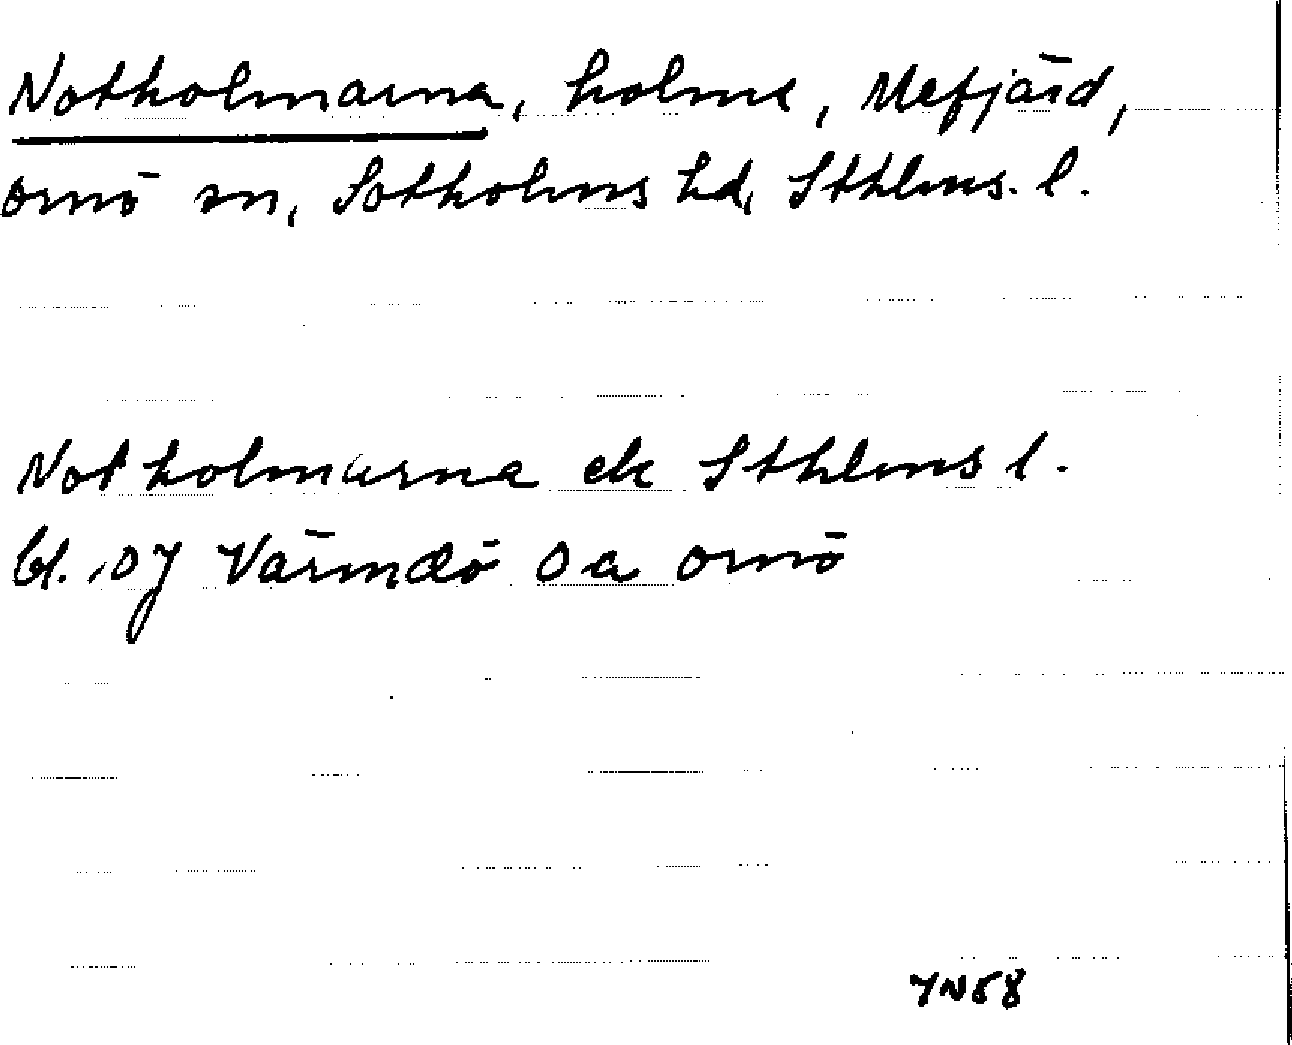 Notholmarna, holme, Mefjärd,
Ornö sn, Sotholms hd, Sthlms. l.
Notholmarna ek Sthlms l.
bl. 107 Värmdö O a Ornö
YN58